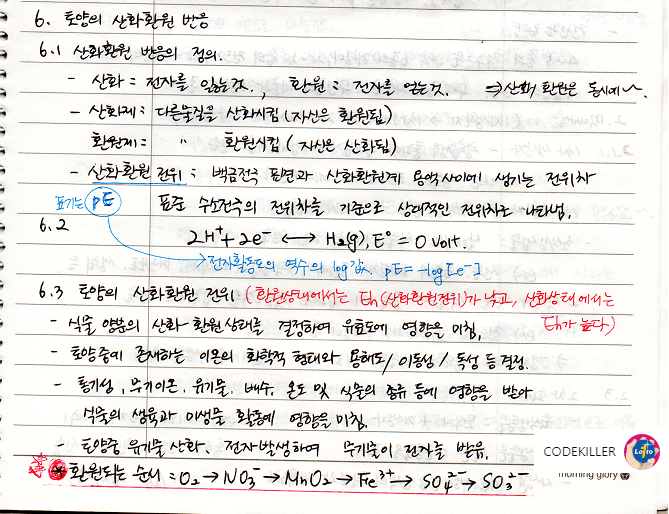 6. 토양의 산화환원 반응
6.1 산화환원 반응의 정의.
- 산화 : 전자를 잃는 것., 환원 : 전자를 얻는 것. ⇒ 산화, 환원은 동시에~.
- 산화제 : 다른물질을 산화시킴 (자신은 환원됨)
환원제 : 〃 환원시킴 (자신은 산화됨)
- 산화환원 전위 : 백금전극 표면과 산화환원계 용액사이에 생기는 전위차
표기는 pE 표준 수소전극의 전위차를 기준으로 상대적인 전위차로 나타냄.
6.2 2H⁺ + 2e⁻ ⟷ H₂(g), E° = 0 Volt.
→ 전자활동도의 역수의 log값. pE = -log[e⁻]
6.3 토양의 산화환원 전위 (환원상태에서는 Eh(산화환원전위)가 낮고, 산화상태에서는 Eh가 높다)
- 식물 양분의 산화-환원상태를 결정하여 유효도에 영향을 미침.
- 토양중에 존재하는 이온의 화학적 형태와 용해도/이동성/독성 등 결정.
- 통기성, 무기이온, 유기물, 배수, 온도 및 식물의 종류 등에 영향을 받아
식물의 생육과 미생물 활동에 영향을 미침.
- 토양중 유기물 산화. 전자발생하여 무기물이 전자를 받음.
환원되는 순서 : O₂ → NO₃⁻ → MnO₂ → Fe³⁺ → SO₄²⁻ → SO₃²⁻
CODEKILLER
Lotto
morning glory